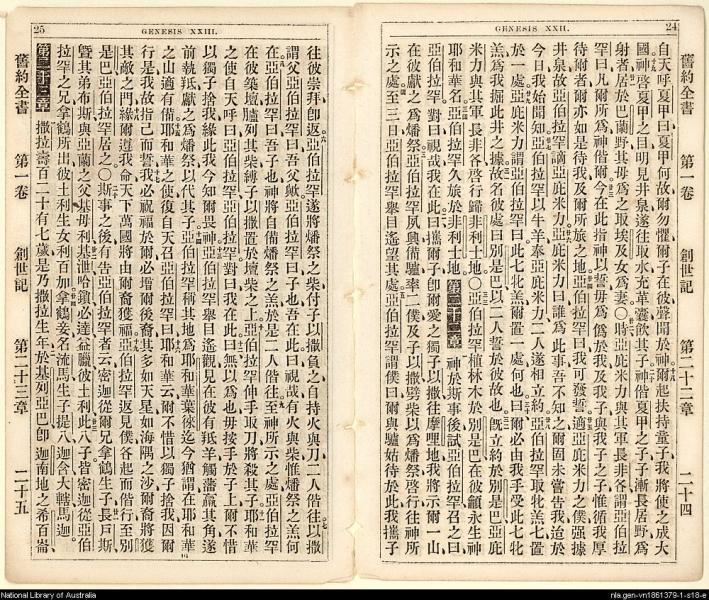 24
GENESIS XXII.
舊約全書 第一卷 創世記 第二十二章 二十四
自天呼夏甲曰夏甲何故爾勿懼爾子在彼聲聞於神爾起扶持童子我將使之成大
國神啓夏甲之目明見井泉遂往取水充革囊飲其子神偕夏甲之子子漸長居野爲
射者居於巴蘭野其母爲之取埃及女爲妻○時亞庇米力與其軍長非各謂亞伯拉
罕曰凡爾所爲神偕爾今在此指神以誓毋爲僞於我及我子與我子之子惟循我厚
待爾者爾亦如是待我及爾所旅之地亞伯拉罕曰我可發誓適亞庇米力之僕强據
井泉故亞伯拉罕謫亞庇米力亞庇米力曰誰爲此事吾不知之爾固未嘗告我迨於
今日我始聞知亞伯拉罕以牛羊奉亞庇米力二人遂相立約亞伯拉罕取牝羔七置
於一處亞庇米力謂亞伯拉罕曰此七牝羔爾置一處何也曰爾必由我手受此七牝
羔爲我掘此井之據故名彼處曰別是巴以二人誓於彼故也旣立約於別是巴亞庇
米力與其軍長非各啓行歸非利士地○亞伯拉罕植林木於別是巴在彼籲永生神
耶和華名亞伯拉罕久旅於非利士地 第二十二章 神於斯事後試亞伯拉罕召之曰
亞伯拉罕對曰視哉我在此曰攜爾子卽爾愛之獨子以撒往摩哩地我將示爾一山
在彼獻之爲燔祭亞伯拉罕夙興備驢率二僕及子以撒劈柴以爲燔祭啓行往神所
示之處至三日亞伯拉罕舉目遙望其處亞伯拉罕謂僕曰爾與驢姑待於此我攜子
25
GENESIS XXIII.
往彼崇拜卽返亞伯拉罕遂將燔祭之柴付子以撒負之自持火與刀二人偕往以撒
謂父亞伯拉罕曰吾父歟亞伯拉罕曰子也吾在此曰視哉有火與柴惟燔祭之羔何
在亞伯拉罕曰吾子也神將自備燔祭之羔於是二人偕往至神所示之處亞伯拉罕
在彼築壇臚列其柴縛子以撒置於壇柴之上亞伯拉罕伸手取刀將殺其子耶和華
之使自天呼曰亞伯拉罕亞伯拉罕對曰我在此曰無以爲也毋按手於子上爾不惜
以獨子捨我緣此我今知爾畏神亞伯拉罕舉目遙觀見在彼有羝羊觸藩羸其角遂
前執羝獻之爲燔祭以代其子亞伯拉罕稱其地爲耶和華葉徠迄今猶謂在耶和華
之山適有備耶和華之使復自天召亞伯拉罕曰耶和華云爾不惜以獨子捨我因爾
行是我故指己而誓我必祝福於爾必增爾後裔其多如天星如海隅之沙爾裔將獲
其敵之門緣爾遵我命天下萬國將由爾裔獲福亞伯拉罕返見僕各起而偕行至別
是巴亞伯拉罕居之○斯事之後有告亞伯拉罕者云密迦從爾兄拿鶴生子長曰斯
曁其弟布斯與亞蘭之父基毋利基泄哈鎖必達益臘彼土利此八子皆密迦從亞伯
拉罕之兄拿鶴所出彼土利生女利百加拿鶴妾名流馬生子提八迦含大轄馬迦
第二十三章 撒拉壽百二十有七歲是乃撒拉生年於基列亞巴卽迦南地之希百崙
舊約全書 第一卷 創世記 第二十三章 二十五
National Library of Australia
nla.gen-vn1861379-1-s18-e